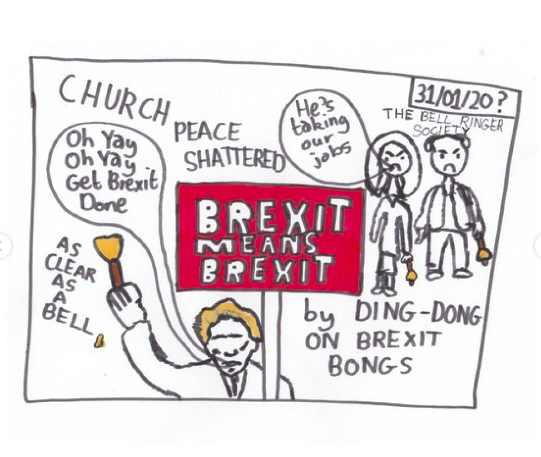 CHURCH
PEACE
SHATTERED
31/01/20?
THE BELL RINGER
SOCIETY
He's
taking
our
jobs
Oh Yay
Oh Yay
Get Brexit
Done
BREXIT
MEANS
BREXIT
AS
CLEAR
AS
A
BELL
by DING-DONG
ON BREXIT
BONGS